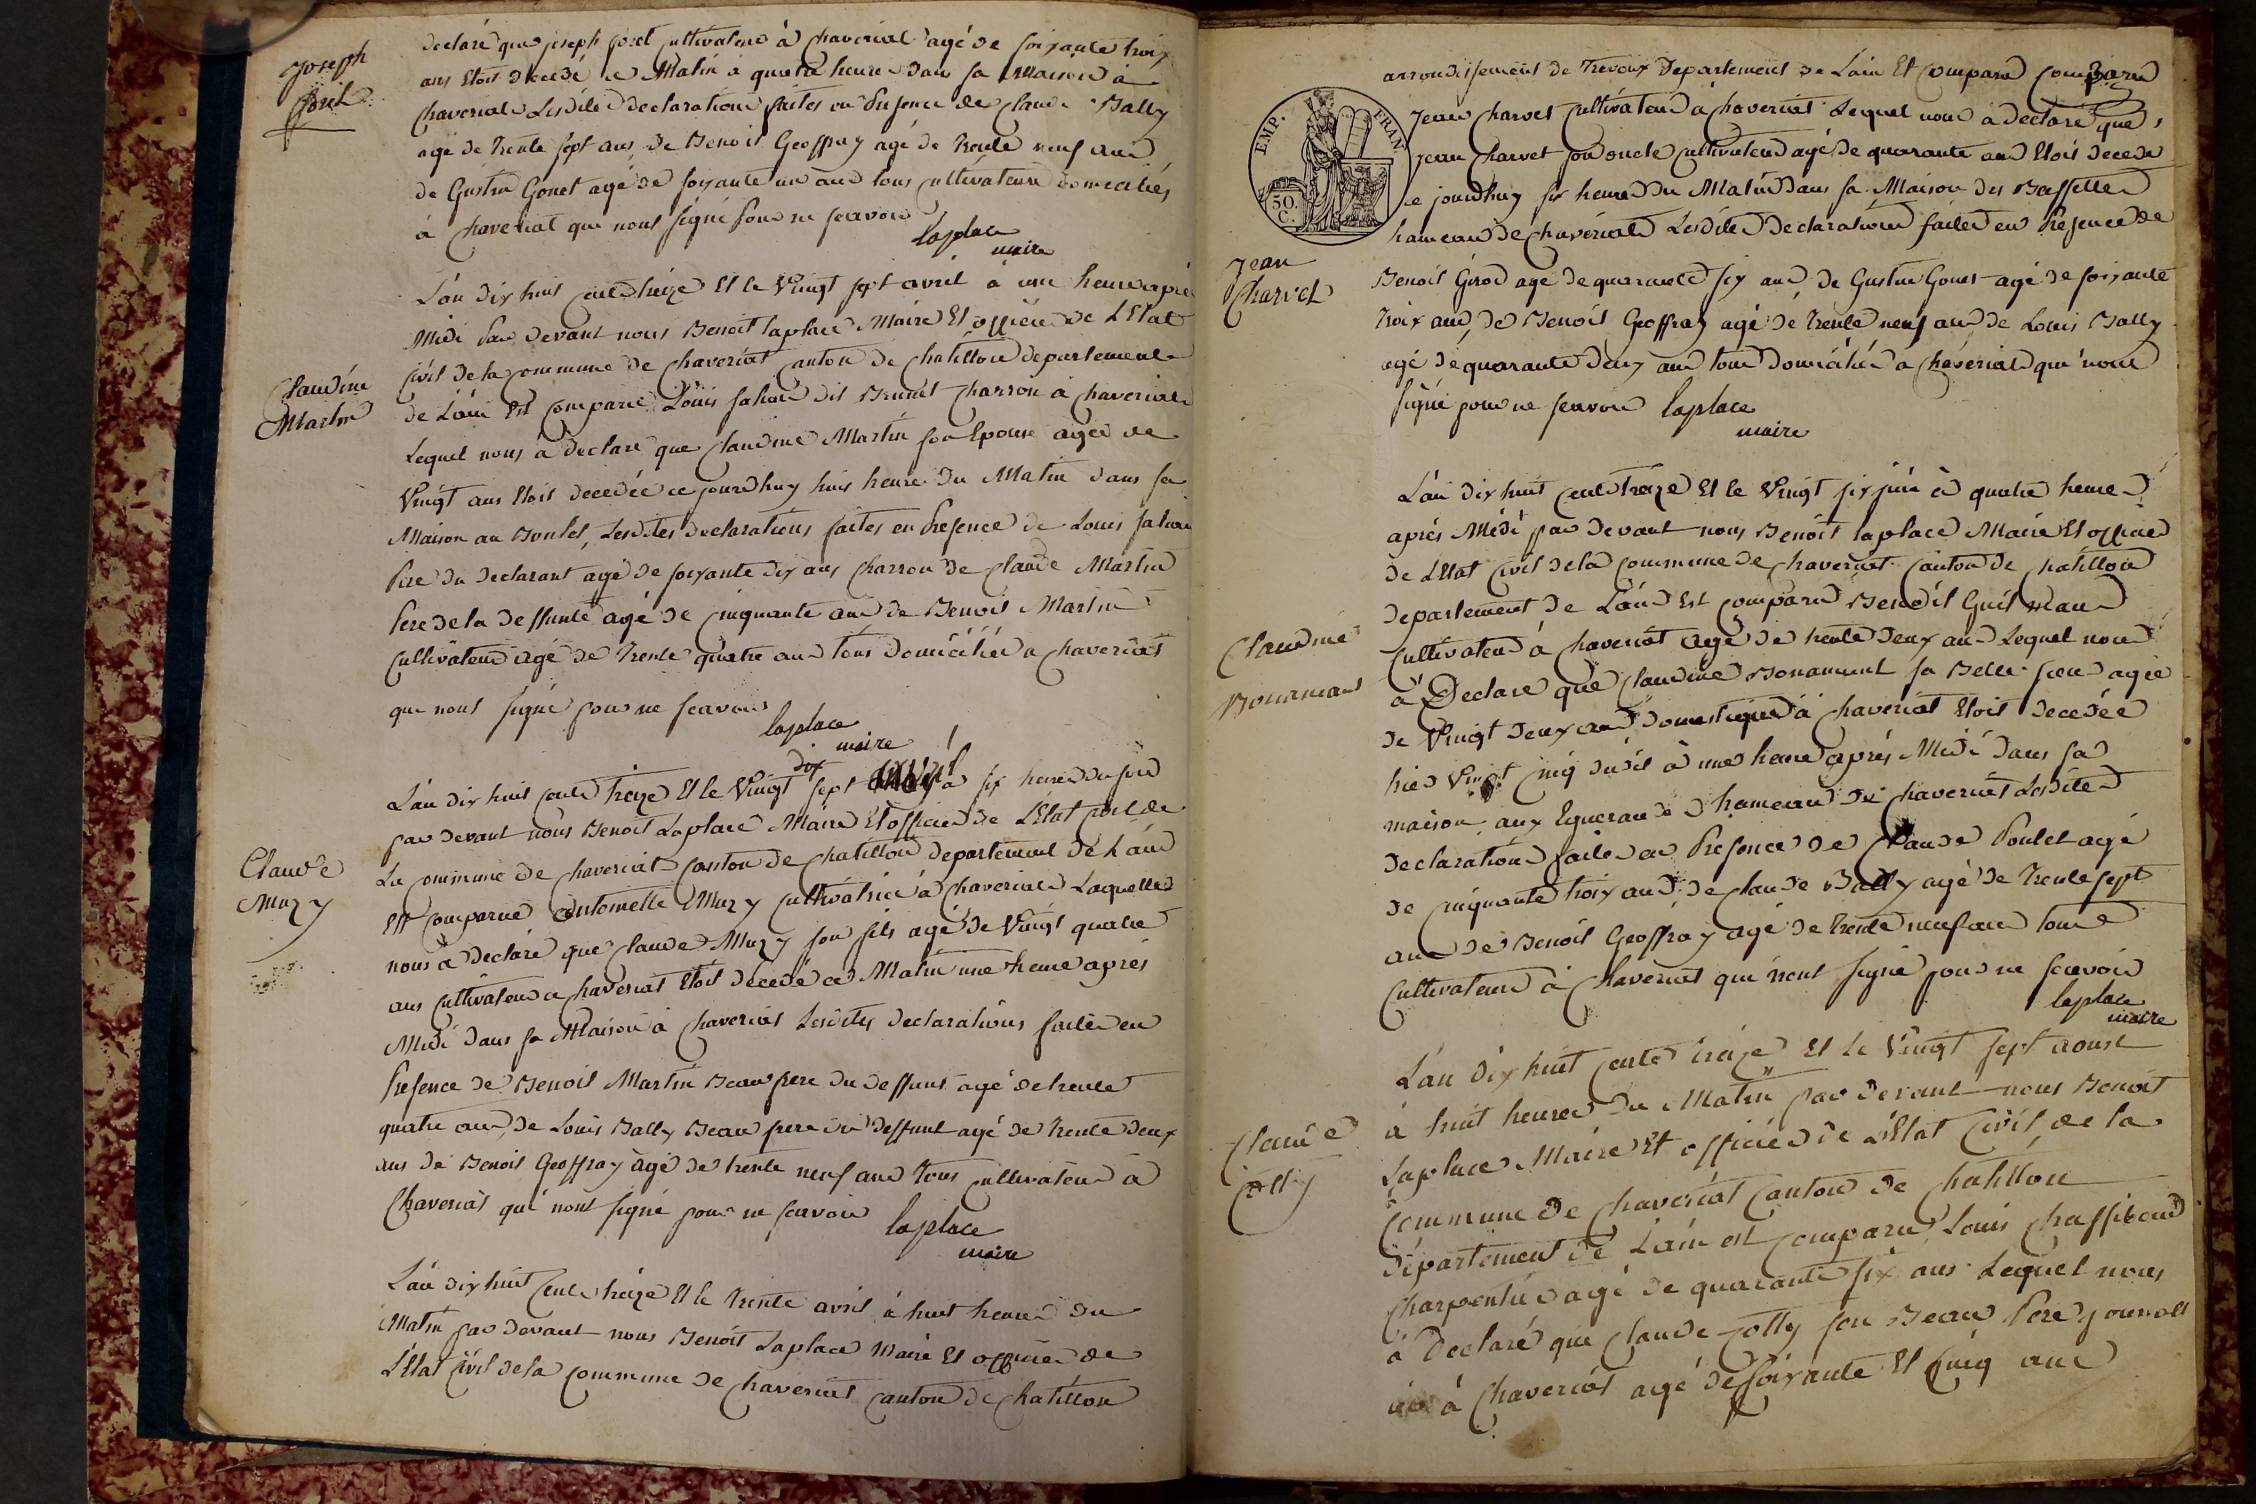 Joseph
foret
declaré que joseph foret cultivateur à chaveriat agé de soixante troix
ans Etoit decedé ce Matin à quatre heure dans sa Maison à
chaveriat Lesdites declarations faites en Presence de Claude Bally
agé de trente sept ans de Benoit Geoffray agé de trente neuf ans
de Gustin Gonet agé de soixante un ans tous cultivateurs domiciliés
à chaveriat qui nont signé pour ne scavoir
laplace
maire
L'an dix huit cent treize Et le Vingt sept avril à une heure après
Midi par devant nous Benoit laplace Maire Et officier de L'Etat
Civil de la commune de chaveriat canton de chatillon departement
Claudine
Martin
de L'ain Est comparu Louis dit Brunet charron à chaveriat
Lequel nous à declaré que claudine Martin son Epouse agée de
Vingt ans Etoit decedée ce jourdhuy huit heure du Matin dans sa
Maison au Boulet, Lesdites declarations faites en Presence de Louis
Pere du declarant agé de soixante dix ans charron de claude Martin
Pere de la deffunte agé de cinquante ans de Benoit Martin
Cultivateur agé de trente quatre ans tous domiciliés a chaveriat
qui nont signé pour ne scavoir
laplace
maire
dix
L'an dix huit cent treize Et le Vingt sept avril à six heure du soir
par devant nous Benoit Laplace Maire Et officier de L'Etat civil de
La commune de chaveriat canton de chatillon departement de L'ain
Claude
Muzy
Est comparue antoinette Muzy cultivatrice à chaveriat Laquelle
nous à declaré que claude Muzy son fils agé de Vingt quatre
ans cultivateur a chaveriat Etoit decedé ce Matin une heure après
Midi dans sa Maison à chaveriat Lesdites declarations faites en
Presence de Benoit Martin Beau frere du deffunt agé de trente
quatre ans, de Louis Bally Beau frere du deffunt agé de trente deux
ans de Benoit Geoffray agé de trente neuf ans tous cultivateur à
Chaveriat qui nont signé pour ne scavoir
laplace
maire
L'an dix huit cent treize Et le trente avril à huit heure du
Matin par devant nous Benoit Laplace Maire Et officier de
L'Etat Civil de la commune de chaveriat canton de chatillon
arrondissement de Trevoux Departement de L'ain Et comparu comparu
EMP. FRAN
50.
C.
Jean charvet Cultivateur à chaveriat Lequel nous à declaré que
jean charvet son oncle cultivateur agé de quarante ans Etoit decedé
ce jourdhuy six heure du Matin dans sa Maison des
hameau de chaveriat Lesdites Declarations faites en Presence de
Jean
Charvet
Benoit Girod agé de quarante six ans de Gustin Gonet agé de soixante
troix ans, de Benoit Geoffray agé de trente neuf ans de Louis Bally
agé de quarante deux ans tous domiciliés a chaveriat qui nont
signé pour ne scavoir laplace
maire
L'an dix huit cent treize Et le Vingt six juin à quatre heure
après Midi par devant nous Benoit laplace Maire Et officier
de L'Etat Civil de la commune de chaveriat canton de chatillon
departement de L'ain Est comparu Benoit
Claudine
Bonamant
Cultivateur à chaveriat agé de trente deux ans Lequel nous
à Declaré que claudine Bonamant sa Belle soeur agée
de Vingt deux ans domestique à chaveriat Etoit decedée
hier Vingt cinq à une heure après Midi dans sa
maison, aux hameau de chaveriat Lesdites
declarations faites en Presence de Claude Poulet agé
de cinquante troix ans de claude Bally agé de trente sept
ans de Benoit Geoffray agé de trente neuf ans tous
Cultivateurs à Chaveriat qui nont signé pour ne scavoir
laplace
maire
L'an dix huit cents treize Et le Vingt sept aoust
à huit heures du Matin par devant nous Benoit
Claude
Colly
Laplace Maire Et officier de L'Etat Civil de la
Commune de chaveriat canton de chatillon
département de L'ain est comparu Louis
Charpentier agé de quarante six ans Lequel nous
à Declaré que Claude Colly son Beau Pere journall
ier à Chaveriat agé de soixante Et Cinq ans